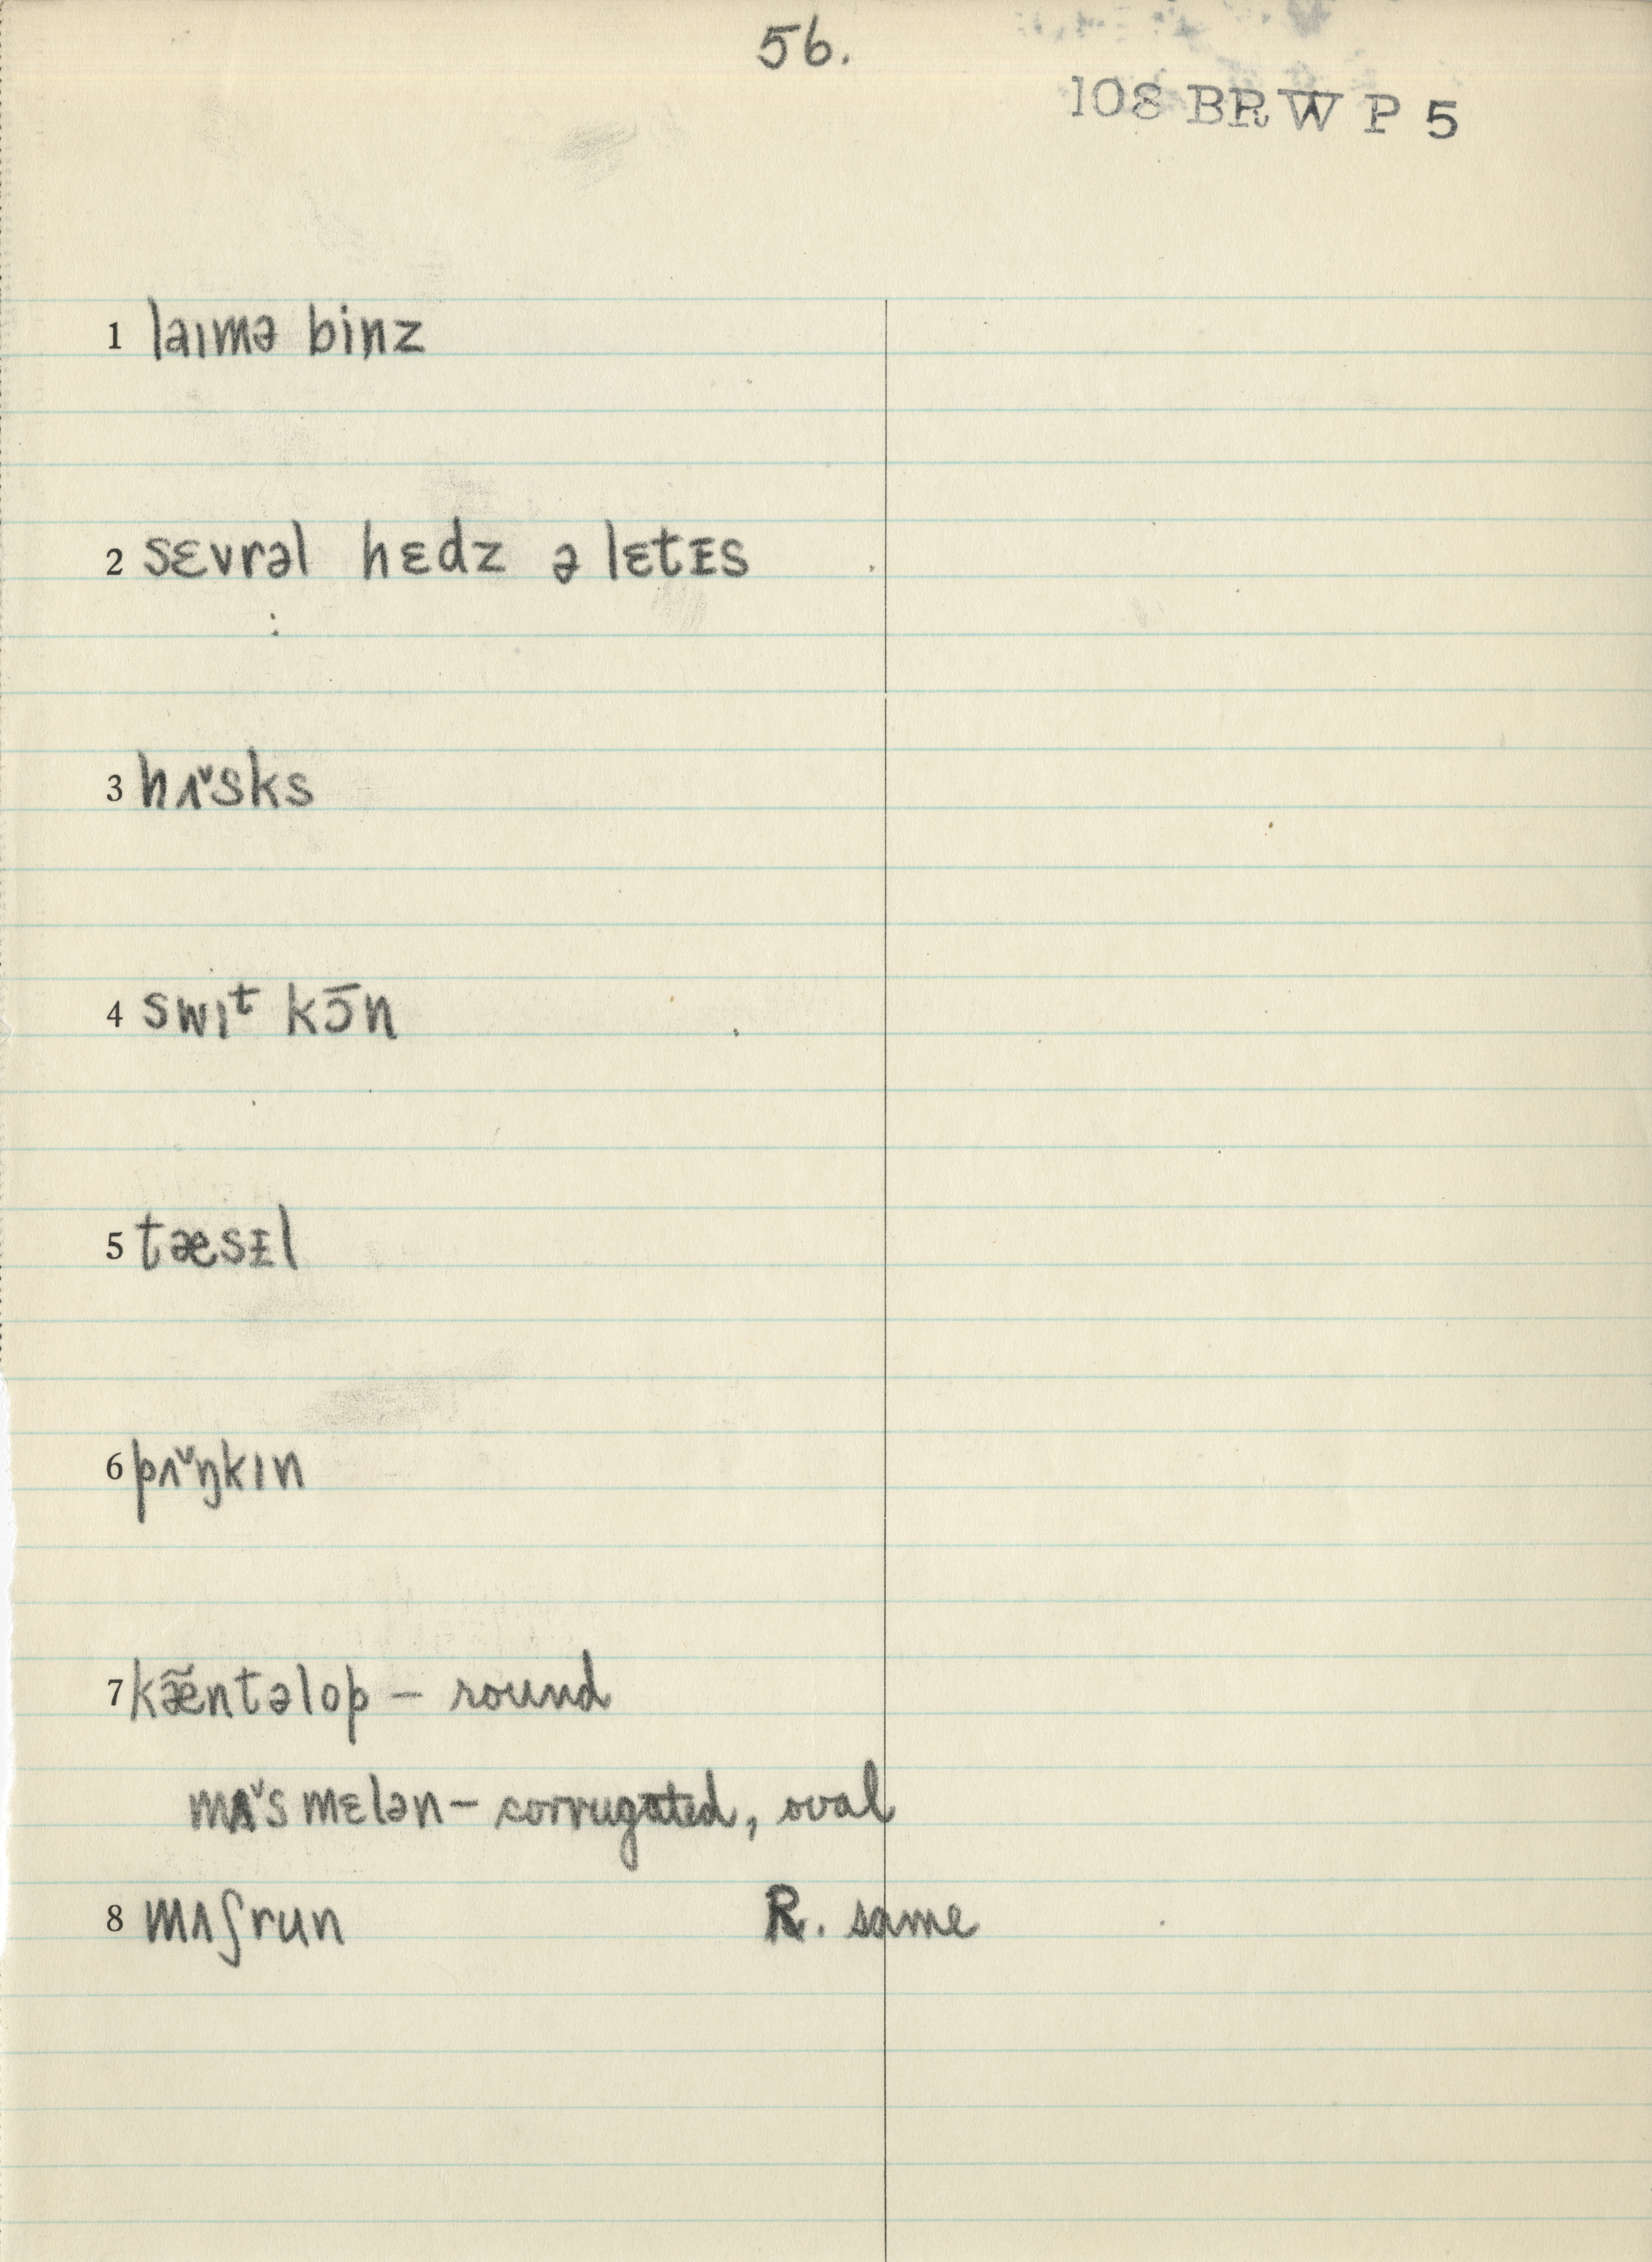 56.
108 BRW P 5
1 laɪmə binz
2 sɛvrəl hɛdz ə lɛtᵻs
3 hʌ̌sks
4 swɪᵗ kɔ̄n
5 tæsᵻl
6 pʌ̌ŋkɪn
7 kæ̃ntəlop – round
mʌ̌smɛlən – corrugated, oval
8 mʌʃrun R. same